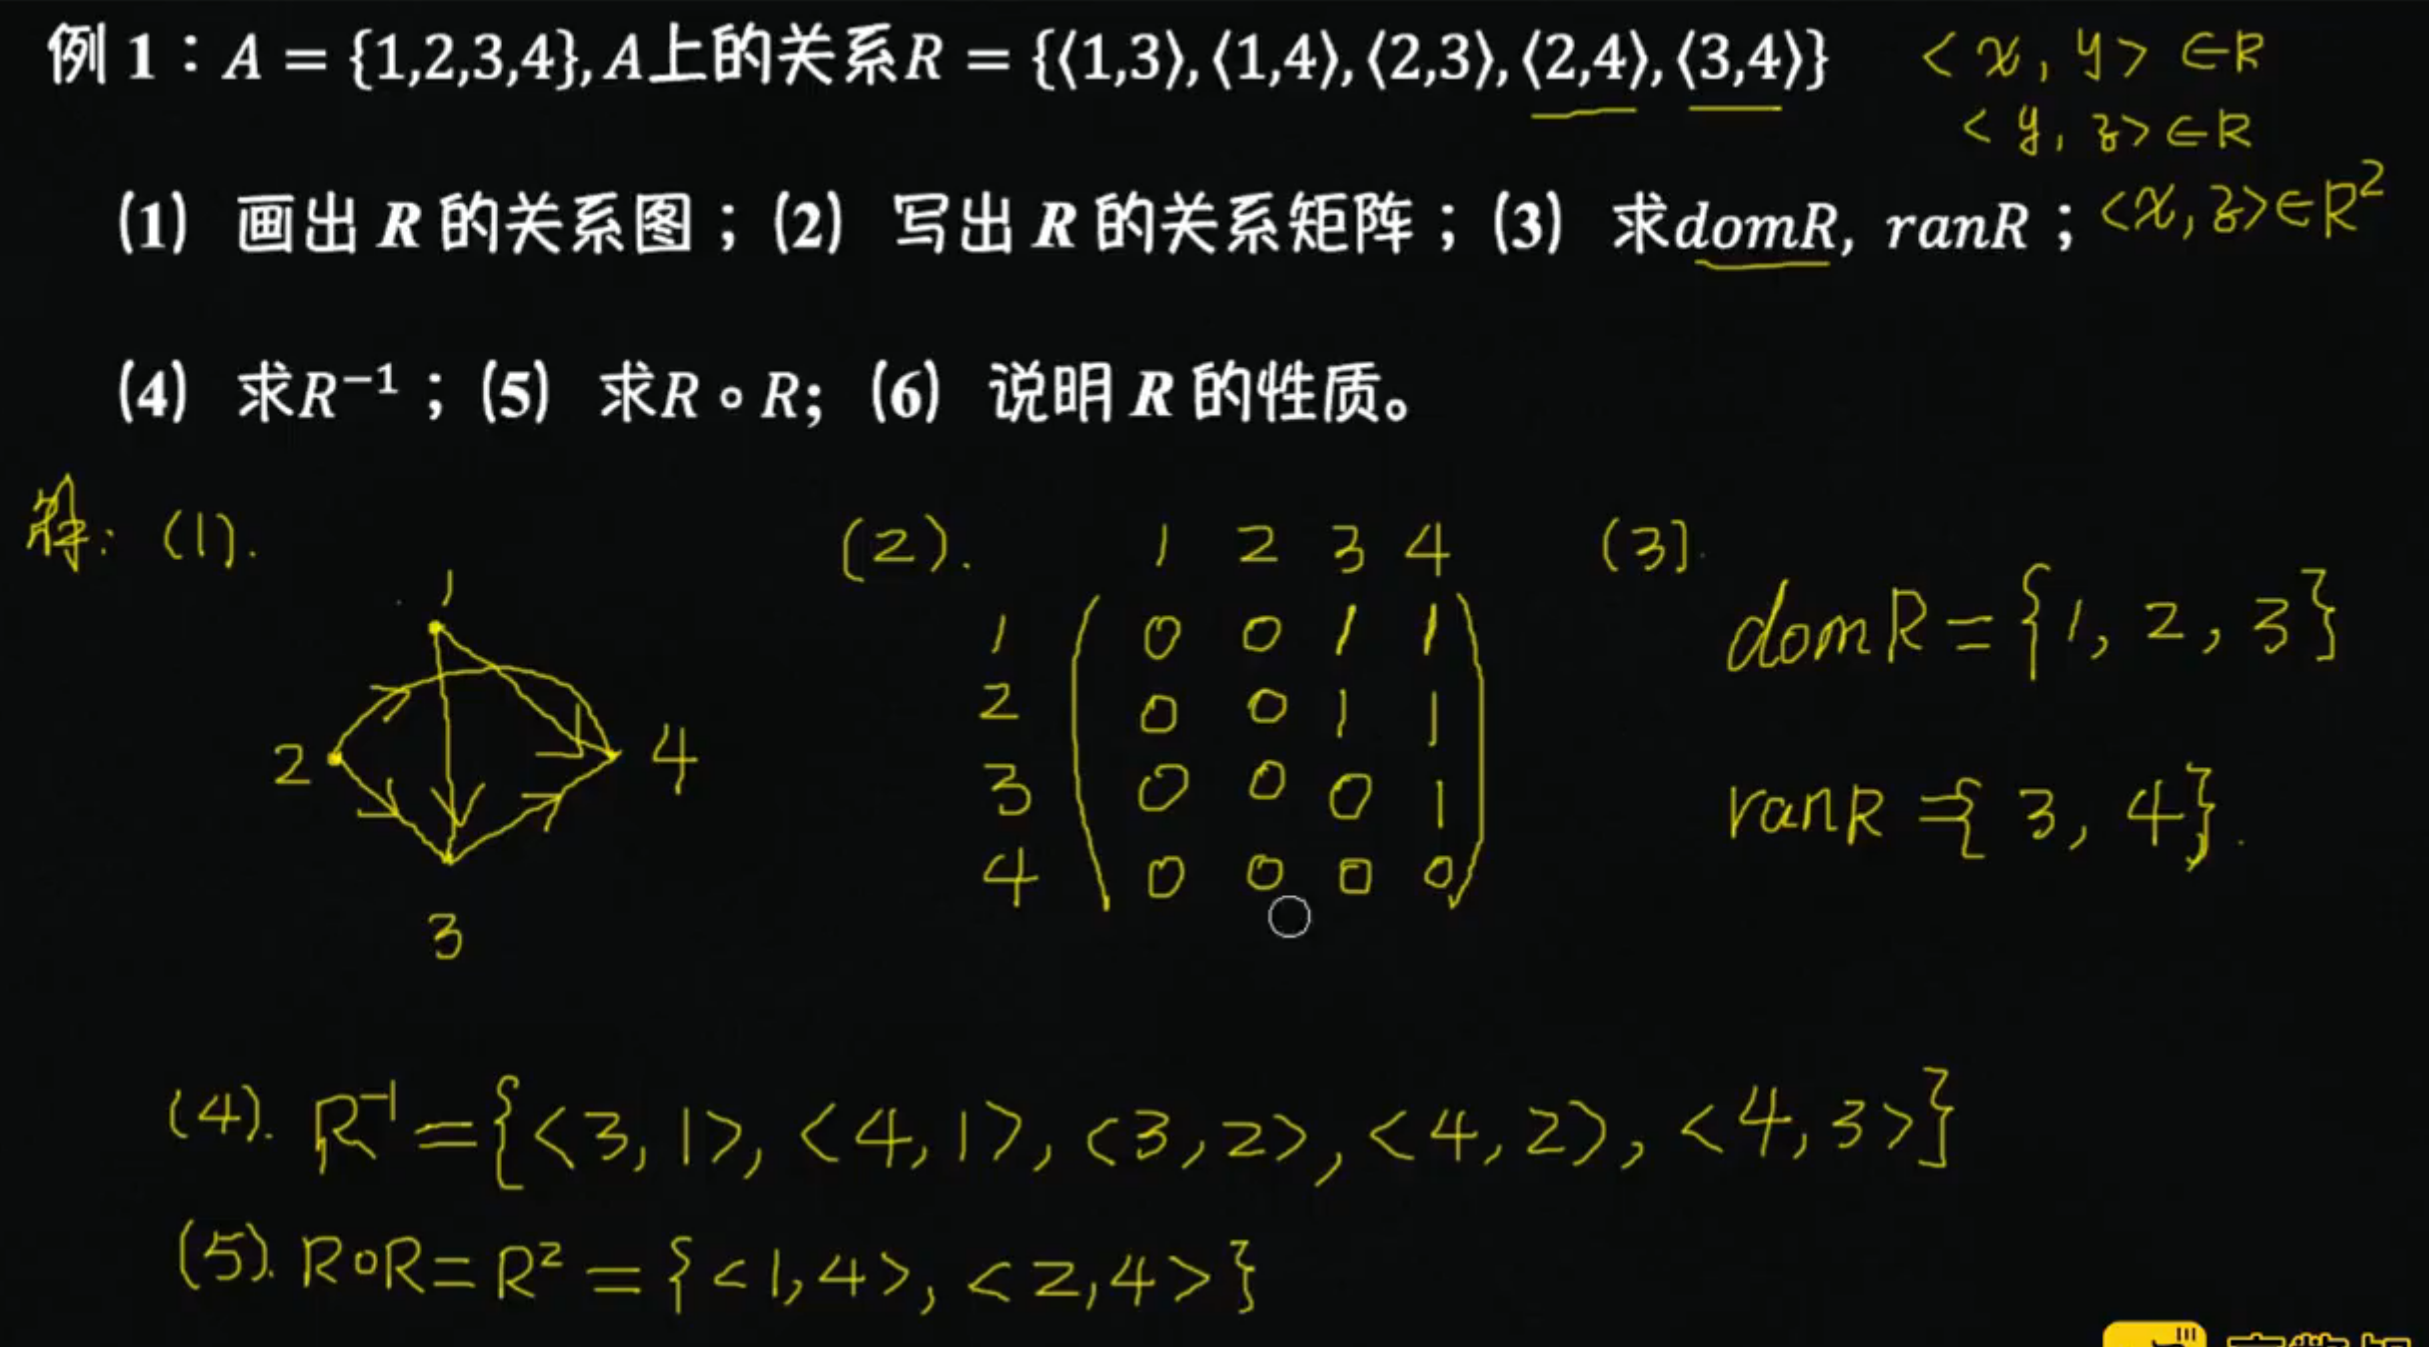 例 1：A = {1,2,3,4}, A上的关系R = {⟨1,3⟩, ⟨1,4⟩, ⟨2,3⟩, ⟨2,4⟩, ⟨3,4⟩}
<x, y> ∈R
<y, z> ∈R
(1) 画出 R 的关系图；(2) 写出 R 的关系矩阵；(3) 求domR, ranR；
<x, z>∈R²
(4) 求R⁻¹；(5) 求R∘R; (6) 说明 R 的性质。
解: (1).
1
2
4
3
(2).
1 2 3 4
1 0 0 1 1
2 0 0 1 1
3 0 0 0 1
4 0 0 0 0
(3).
domR = {1, 2, 3}
ranR = {3, 4}.
(4). R⁻¹ = {<3, 1>, <4, 1>, <3, 2>, <4, 2>, <4, 3>}
(5). R∘R = R² = {<1,4>, <2,4>}